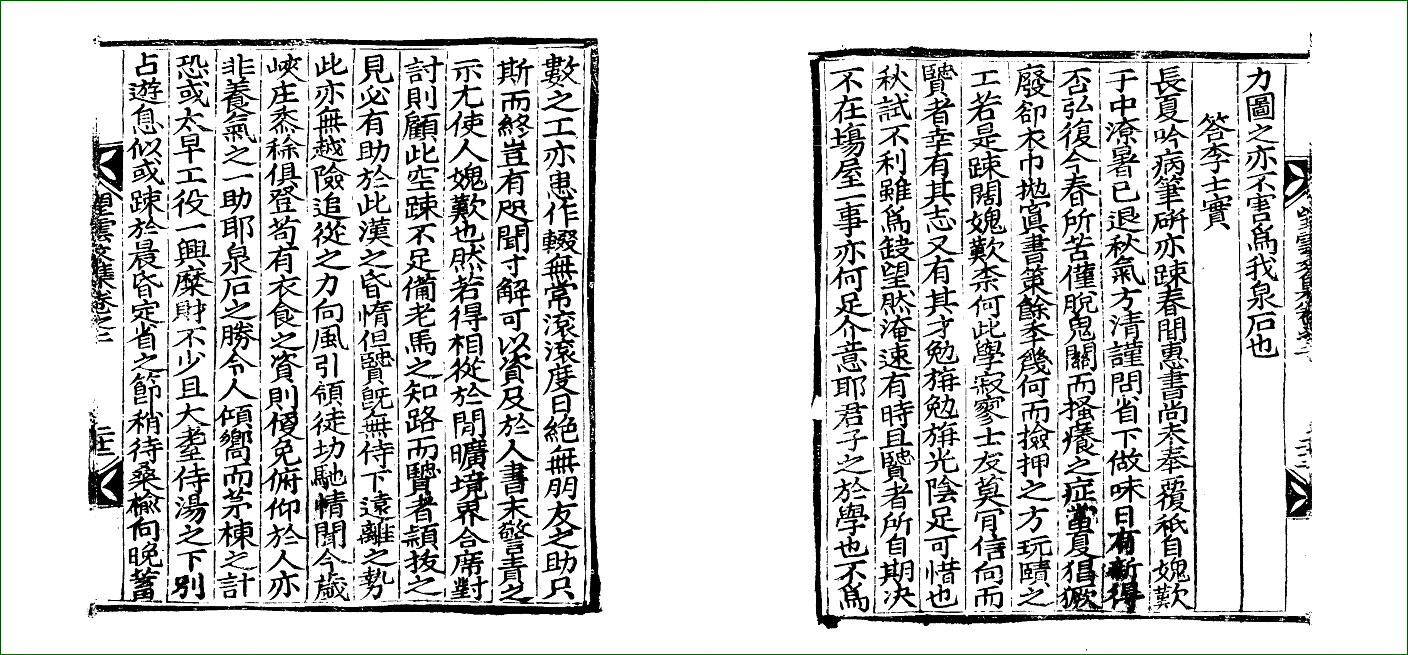 力圖之亦不害爲我泉石也
答李士賓
長夏吟病筆硏亦踈春間惠書尚未奉覆秖自媿歎
于中潦暑已退秋氣方清謹問省下做味日有新得
否弘復今春所苦僅脫鬼關而搔癢之症當夏猖獗
廢卻衣巾拋寘書策餘季幾何而撿押之方玩賾之
工若是踈闊媿歎柰何此學寂寥士友莫肎信向而
賢者幸有其志又有其才勉旃勉旃光陰足可惜也
秋試不利雖爲缺望然淹速有時且賢者所自期决
不在塲屋一事亦何足介意耶君子之於學也不爲
數之工亦患作輟無常滚滚度日絶無朋友之助只
斯而終豈有咫聞寸解可以資及於人書末警責之
示尤使人媿歎也然若得相從於閒曠境界合席對
討則顧此空踈不足備老馬之知路而賢者穎拔之
見必有助於此漢之昏惰但賢旣無侍下遠離之勢
此亦無越險追從之力向風引領徒切馳情聞今歲
峽庄黍稌俱登苟有衣食之資則傾免俯仰於人亦
非養氣之一助耶泉石之勝令人傾嚮而茅棟之計
恐或太早工役一興糜財不少且大耋侍湯之下別
占遊息似或踈於晨昏定省之節稍待桑楡向晚蓄
雲文集卷之三
二十二